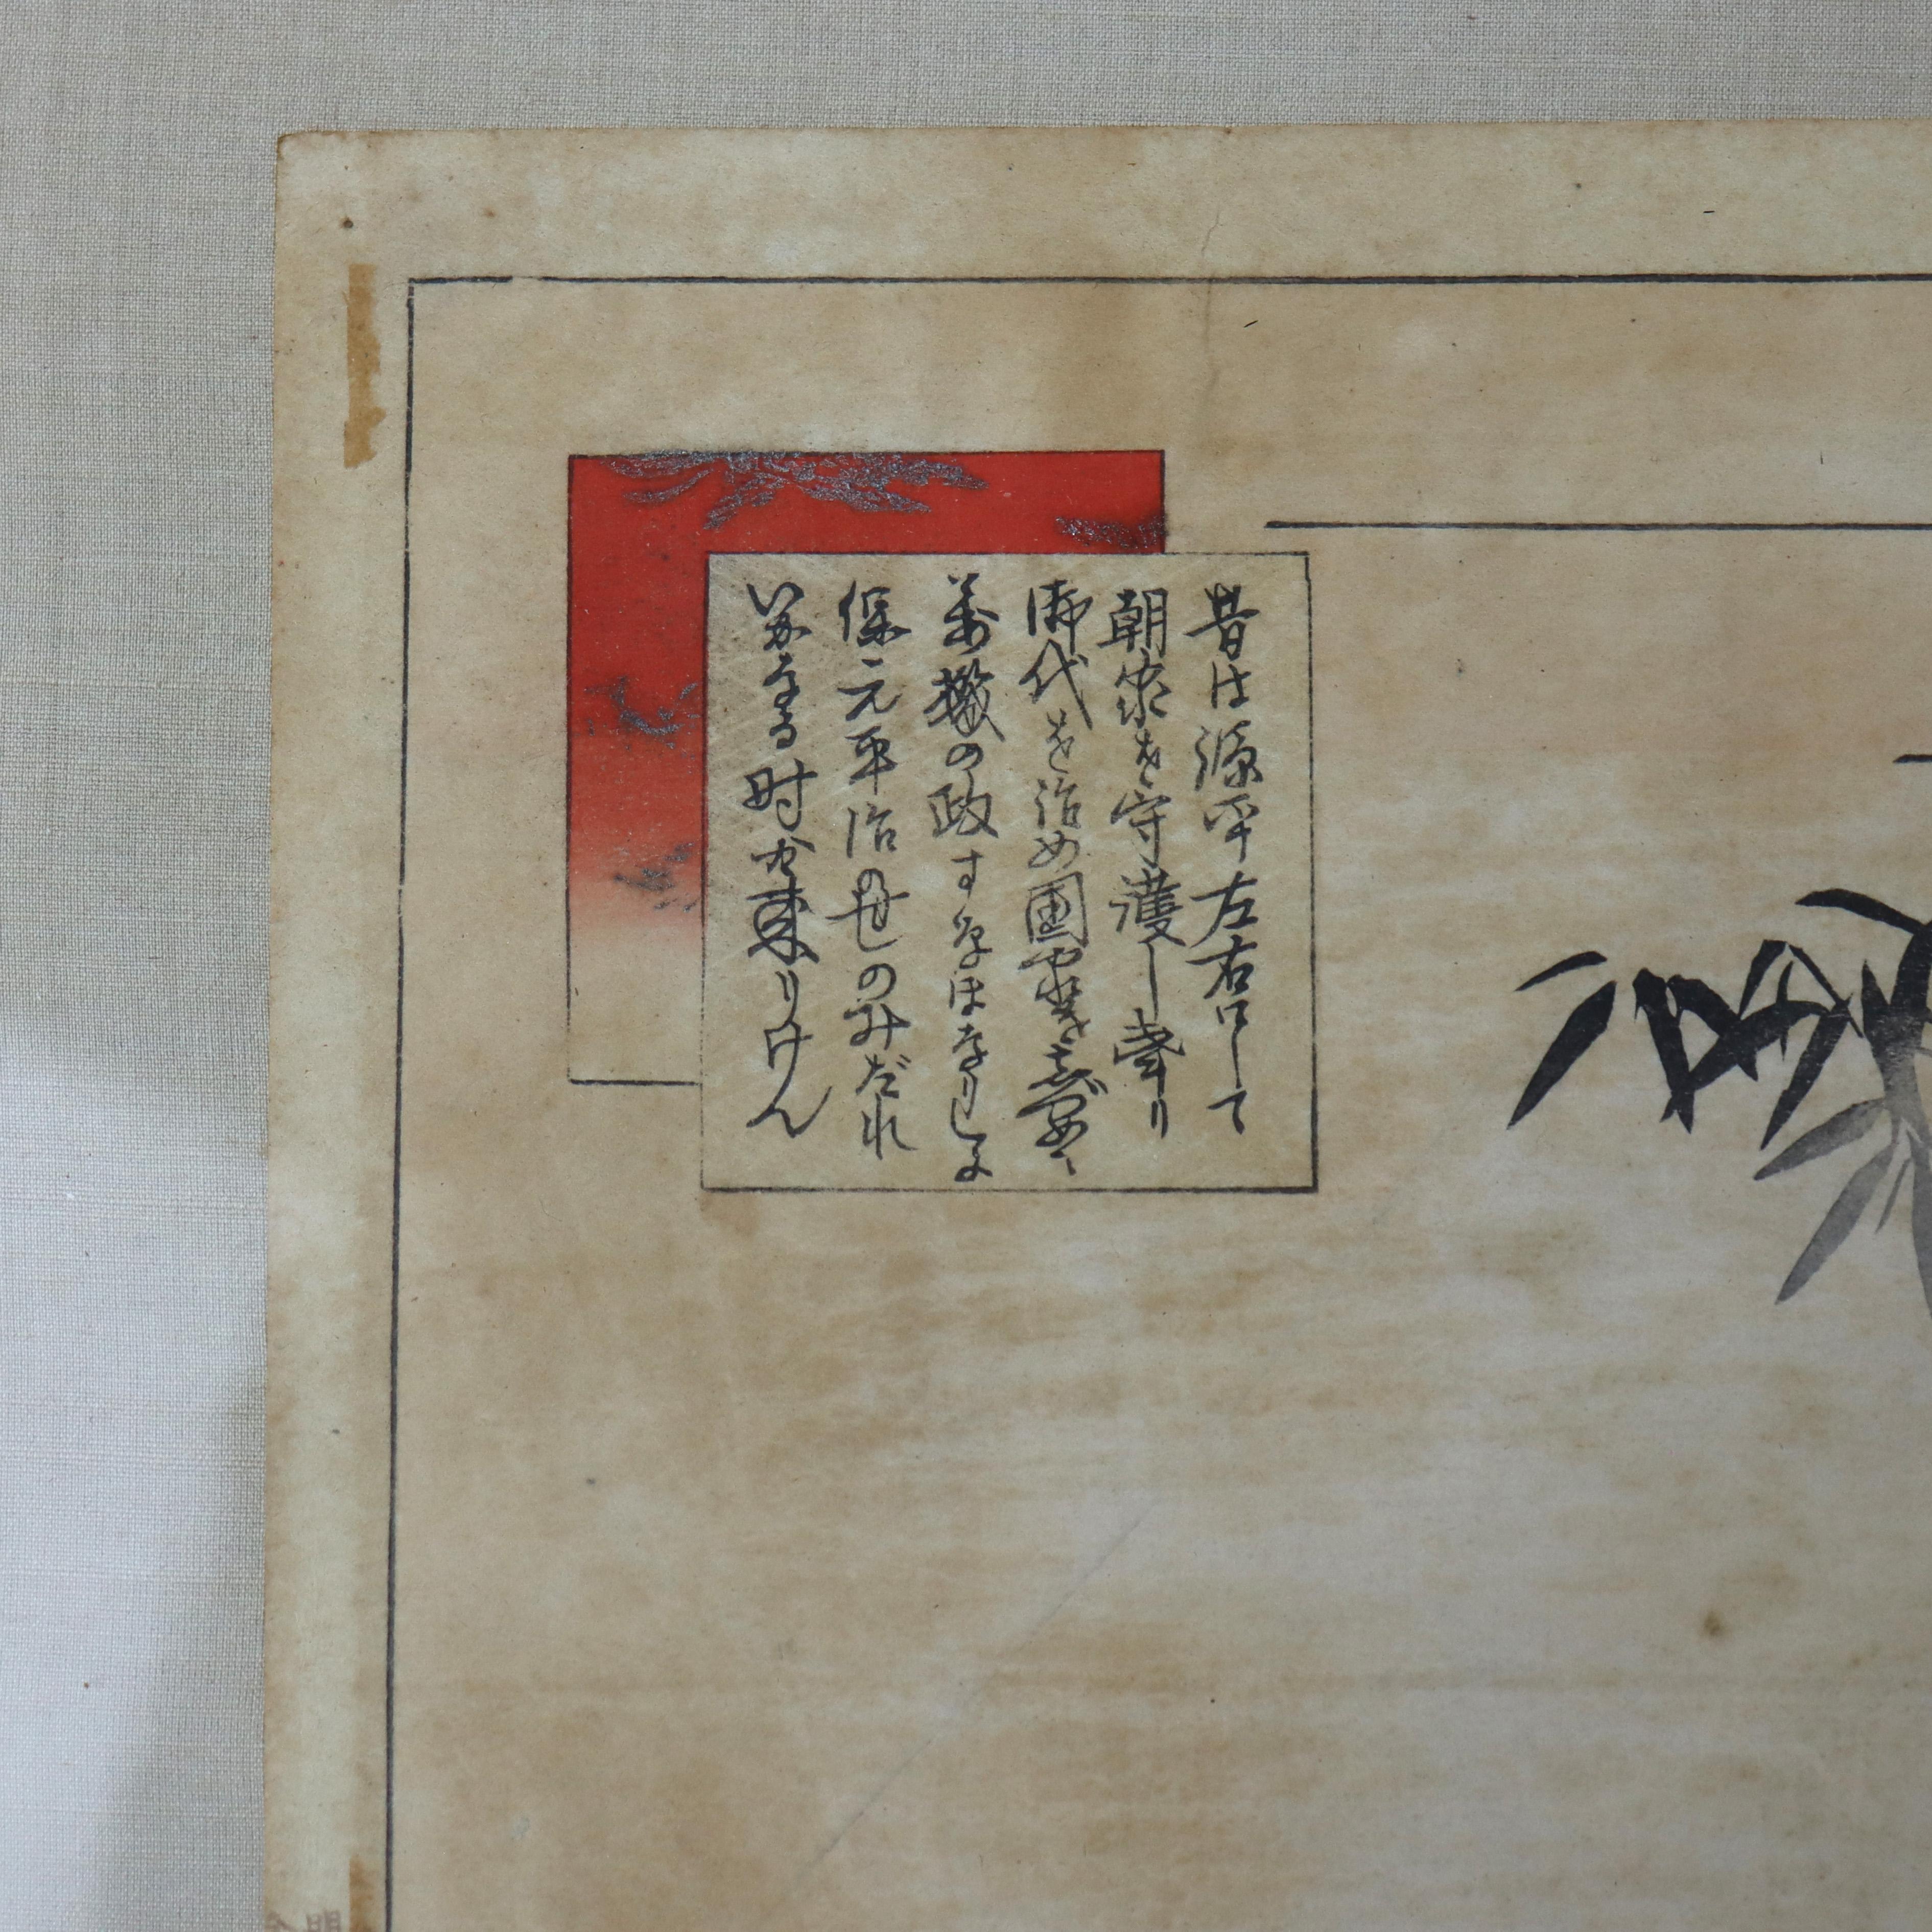 昔は源平左右にして
朝家を守護し奉り
御代を治め国家を
萬機の政すなほなりしに
保元平治の世のみだれ
いかなる時か来りけん